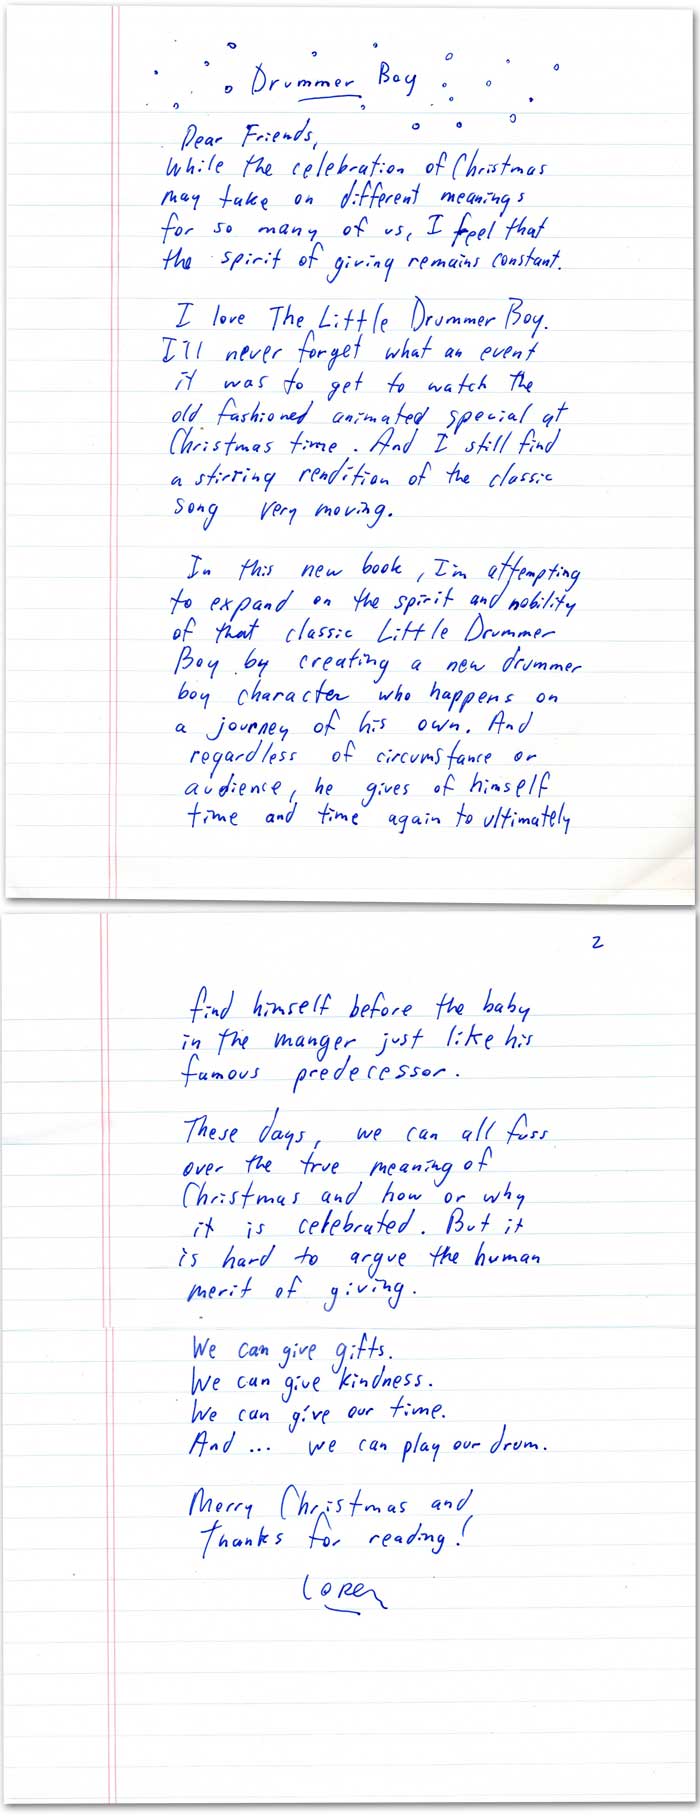 Drummer Boy
Dear Friends,
While the celebration of Christmas
may take on different meanings
for so many of us, I feel that
the spirit of giving remains constant.
I love The Little Drummer Boy.
I'll never forget what an event
it was to get to watch the
old fashioned animated special at
Christmas time. And I still find
a stirring rendition of the classic
song very moving.
In this new book, I'm attempting
to expand on the spirit and nobility
of that classic Little Drummer
Boy by creating a new drummer
boy character who happens on
a journey of his own. And
regardless of circumstance or
audience, he gives of himself
time and time again to ultimately
2
find himself before the baby
in the manger just like his
famous predecessor.
These days, we can all fuss
over the true meaning of
Christmas and how or why
it is celebrated. But it
is hard to argue the human
merit of giving.
We can give gifts.
We can give kindness.
We can give our time.
And ... we can play our drum.
Merry Christmas and
Thanks for reading!
Loren